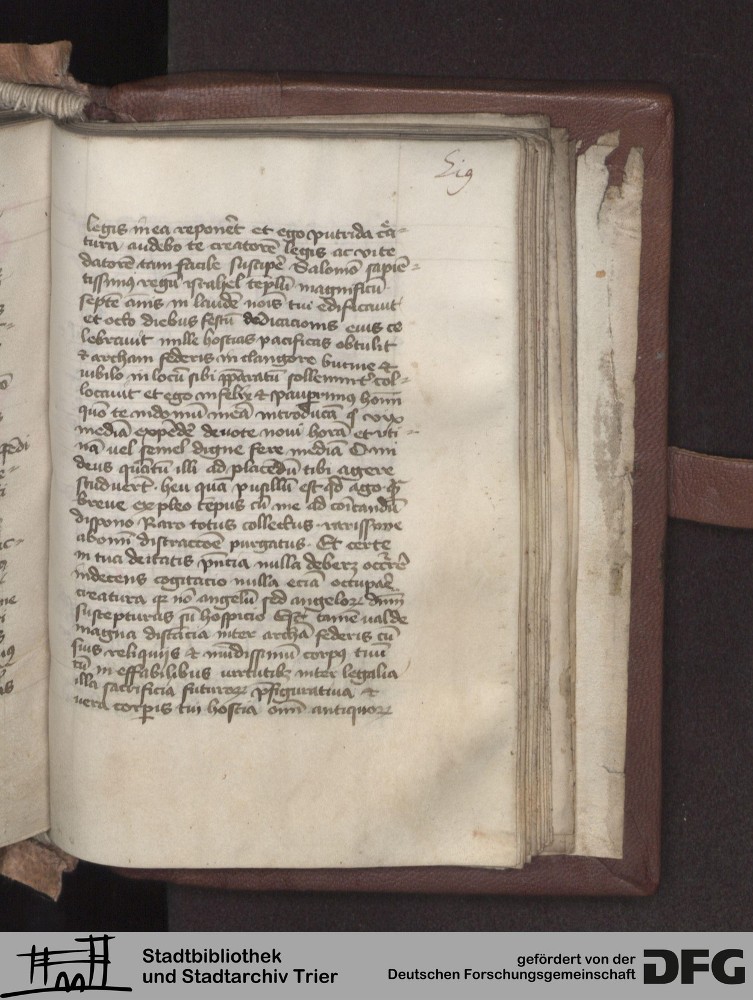 Sig
legis in ea reponeret et ego putrida crea-
tura audebo te creatorē legis ac vite
datorē tam facile suscipē Salomō sapiē-
tissimꝰ regū israhel templū magnificū
septē ānis in laudē nōis tui edificauit
et octo diebus festū dedicacionis eius ce
lebrauit mille hostias pacificas obtulit
et archam federis in clangore bucine et
iubilo in locū sibi p̄paratū sollemnit͛ col-
locauit et ego infelix et paup̄rimus homī
quō te in domū meā introducā qͥ vix
mediā expēdē deuote noui horā et vti-
nā vel semel digne fere mediā O mi
deus quātū illi ad placēdū tibi agere
studuerūt · heu quā pusillū est qd̄ ago · qͣ
breue expleo tēpus cū me ad cōicandū
dispono · Raro totus collectus · rarissime
ab omī distraccōe purgatus · Et certe
in tua deitatis p̄ncia nulla deberꝫ occr̄rē
indecens cogitacio nulla eciā occupaē
creatura qꝛ nō angelū sed angeloꝝ dn̄m
suscepturus sū hospicio Est tamē valde
magna distācia inter archā federis cū
suis reliquijs et mūdissimū corpꝰ tuū
cū ineffabilibus virtutibꝫ inter legalia
illa sacrificia futuroꝝ p̄figuratiua et
verā corp̄is tui hostiā om̄ antiquoꝝ
Stadtbibliothek
und Stadtarchiv Trier
gefördert von der
Deutschen Forschungsgemeinschaft
DFG